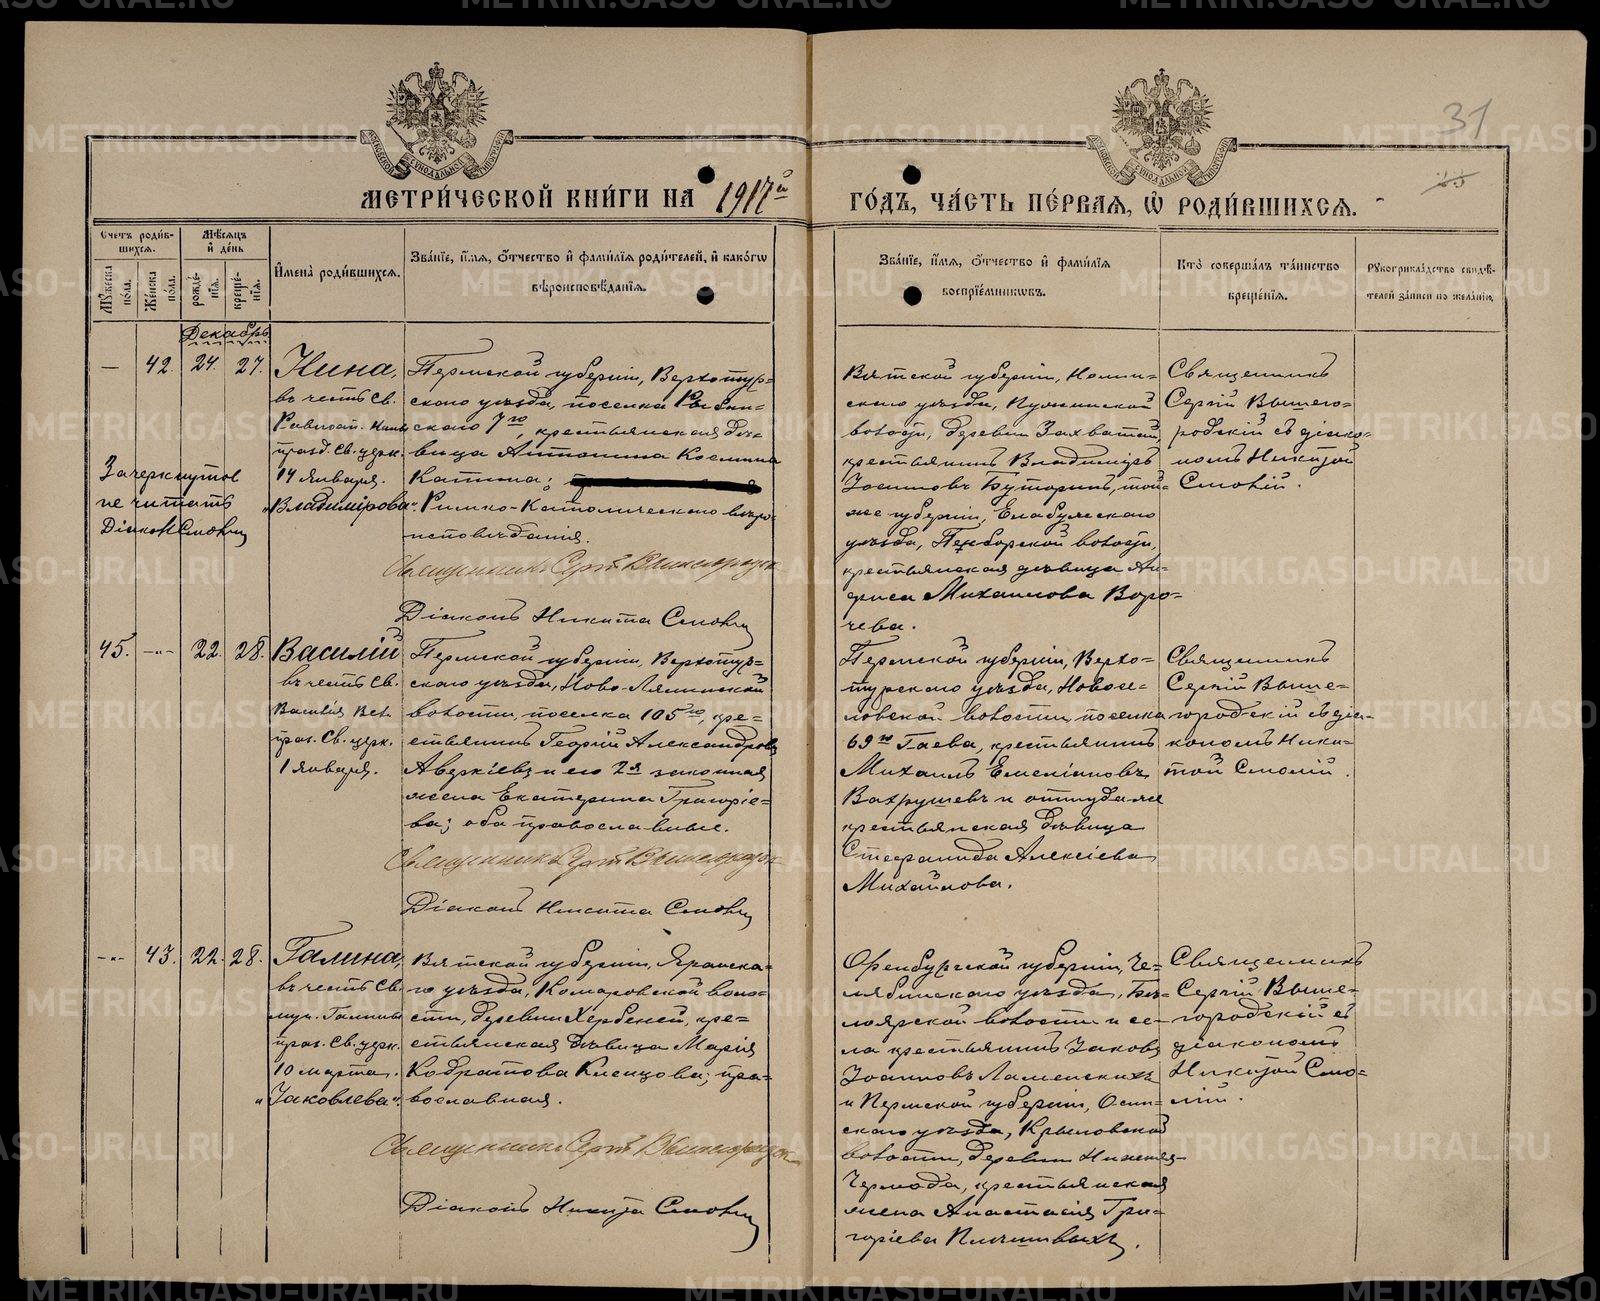 31
МЕТРИЧЕСКОЙ КНИГИ НА 1917й ГОДЪ, ЧАСТЬ ПЕРВАЯ, Ѡ РОДИВШИХСЯ.
Счетъ родив-
шихся.
Мѣсяцъ
и день
Мужеска
пола.
Женска
пола.
рожде-
нія.
креще-
нія.
Имена родившихся.
Званіе, имя, отчество и фамилія родителей, и какого
вѣроисповѣданія.
Званіе, имя, отчество и фамилія
воспріемниковъ.
Кто совершалъ таинство
крещенія.
Рукоприкладство свидѣ-
телей записи по желанію.
Декабрь
— 42. 24. 27.
Нина,
въ честь Св.
Равноап. Нины
празд. Св. церк.
14 Января.
"Владимірова".
Зачеркнутое
не читать
Діаконъ Смолій
Пермской губерніи, Верхотур-
скаго уѣзда, поселка
скаго 7го, крестьянская дѣ-
вица Антонина Космина
Катина;
Римско-Католическаго вѣро-
исповѣданія.
Священникъ Сергій Вышегородскій
Діаконъ Никита Смолій
Вятской губерніи, Нолин-
скаго уѣзда,
волости, деревни
крестьянинъ Владиміръ
Іоанновъ Буторинъ, той-
же губерніи, Елабужскаго
уѣзда, волости,
крестьянская дѣвица Ан-
фиса Михаилова Воро-
чева.
Священникъ
Сергій Вышего-
родскій съ діако-
номъ Никитой
Смолій.
45. -"- 22. 28.
Василій
въ честь Св.
Василія Вел.
праз. Св. церк.
1 Января.
Пермской губерніи, Верхотур-
скаго уѣзда, Ново-Лялинской
волости, поселка 105го, кре-
стьянинъ Георгій Александровъ
Аверкіевъ и его 2я законная
жена Екатерина Григоріе-
ва; оба православные.
Священникъ Сергій Вышегородскій
Діаконъ Никита Смолій
Пермской губерніи, Верхо-
турскаго уѣзда, Новосе-
ловской волости, поселка
69го Гаева, крестьянинъ
Михаилъ Емеліановъ
Вахрушевъ и оттуда же
крестьянская дѣвица
Стефанида Алексіева
Михайлова.
Священникъ
Сергій Выше-
городскій съ діа-
кономъ Ники-
той Смолій.
-"- 43. 22. 28.
Галина,
въ честь Св.
муч. Галины
праз. Св. церк.
10 марта.
"Іаковлева".
Вятской губерніи, Яранска-
го уѣзда, Комаровской воло-
сти, деревни кре-
стьянская дѣвица Марія
Кодратова Кленцова; пра-
вославная.
Священникъ Сергій Вышегородскій
Діаконъ Никита Смолій
Оренбургской губерніи, Че-
лябинскаго уѣзда, Бѣ-
лоярской волости и се-
ла крестьянинъ Іаковъ
Іоанновъ Ламенскихъ
и Пермской губерніи, Осин-
скаго уѣзда, Крыловской
волости, деревни Нижняя-
Чермода, крестьянская
жена Анастасія Гри-
горіева Плѣшивыхъ.
Священникъ
Сергій Выше-
городскій съ
діакономъ
Никитой Смо-
лій.
METRIKI.GASO-URAL.RU